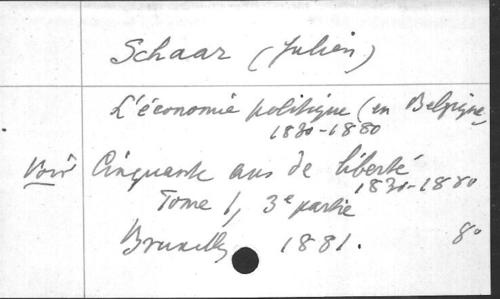 Schaar (Julien)
L'économie politique (en Belgique
1830-1880
Voir Cinquante ans de liberté
1830-1880
Tome 1, 3e partie
Bruxelles 1881. 8°